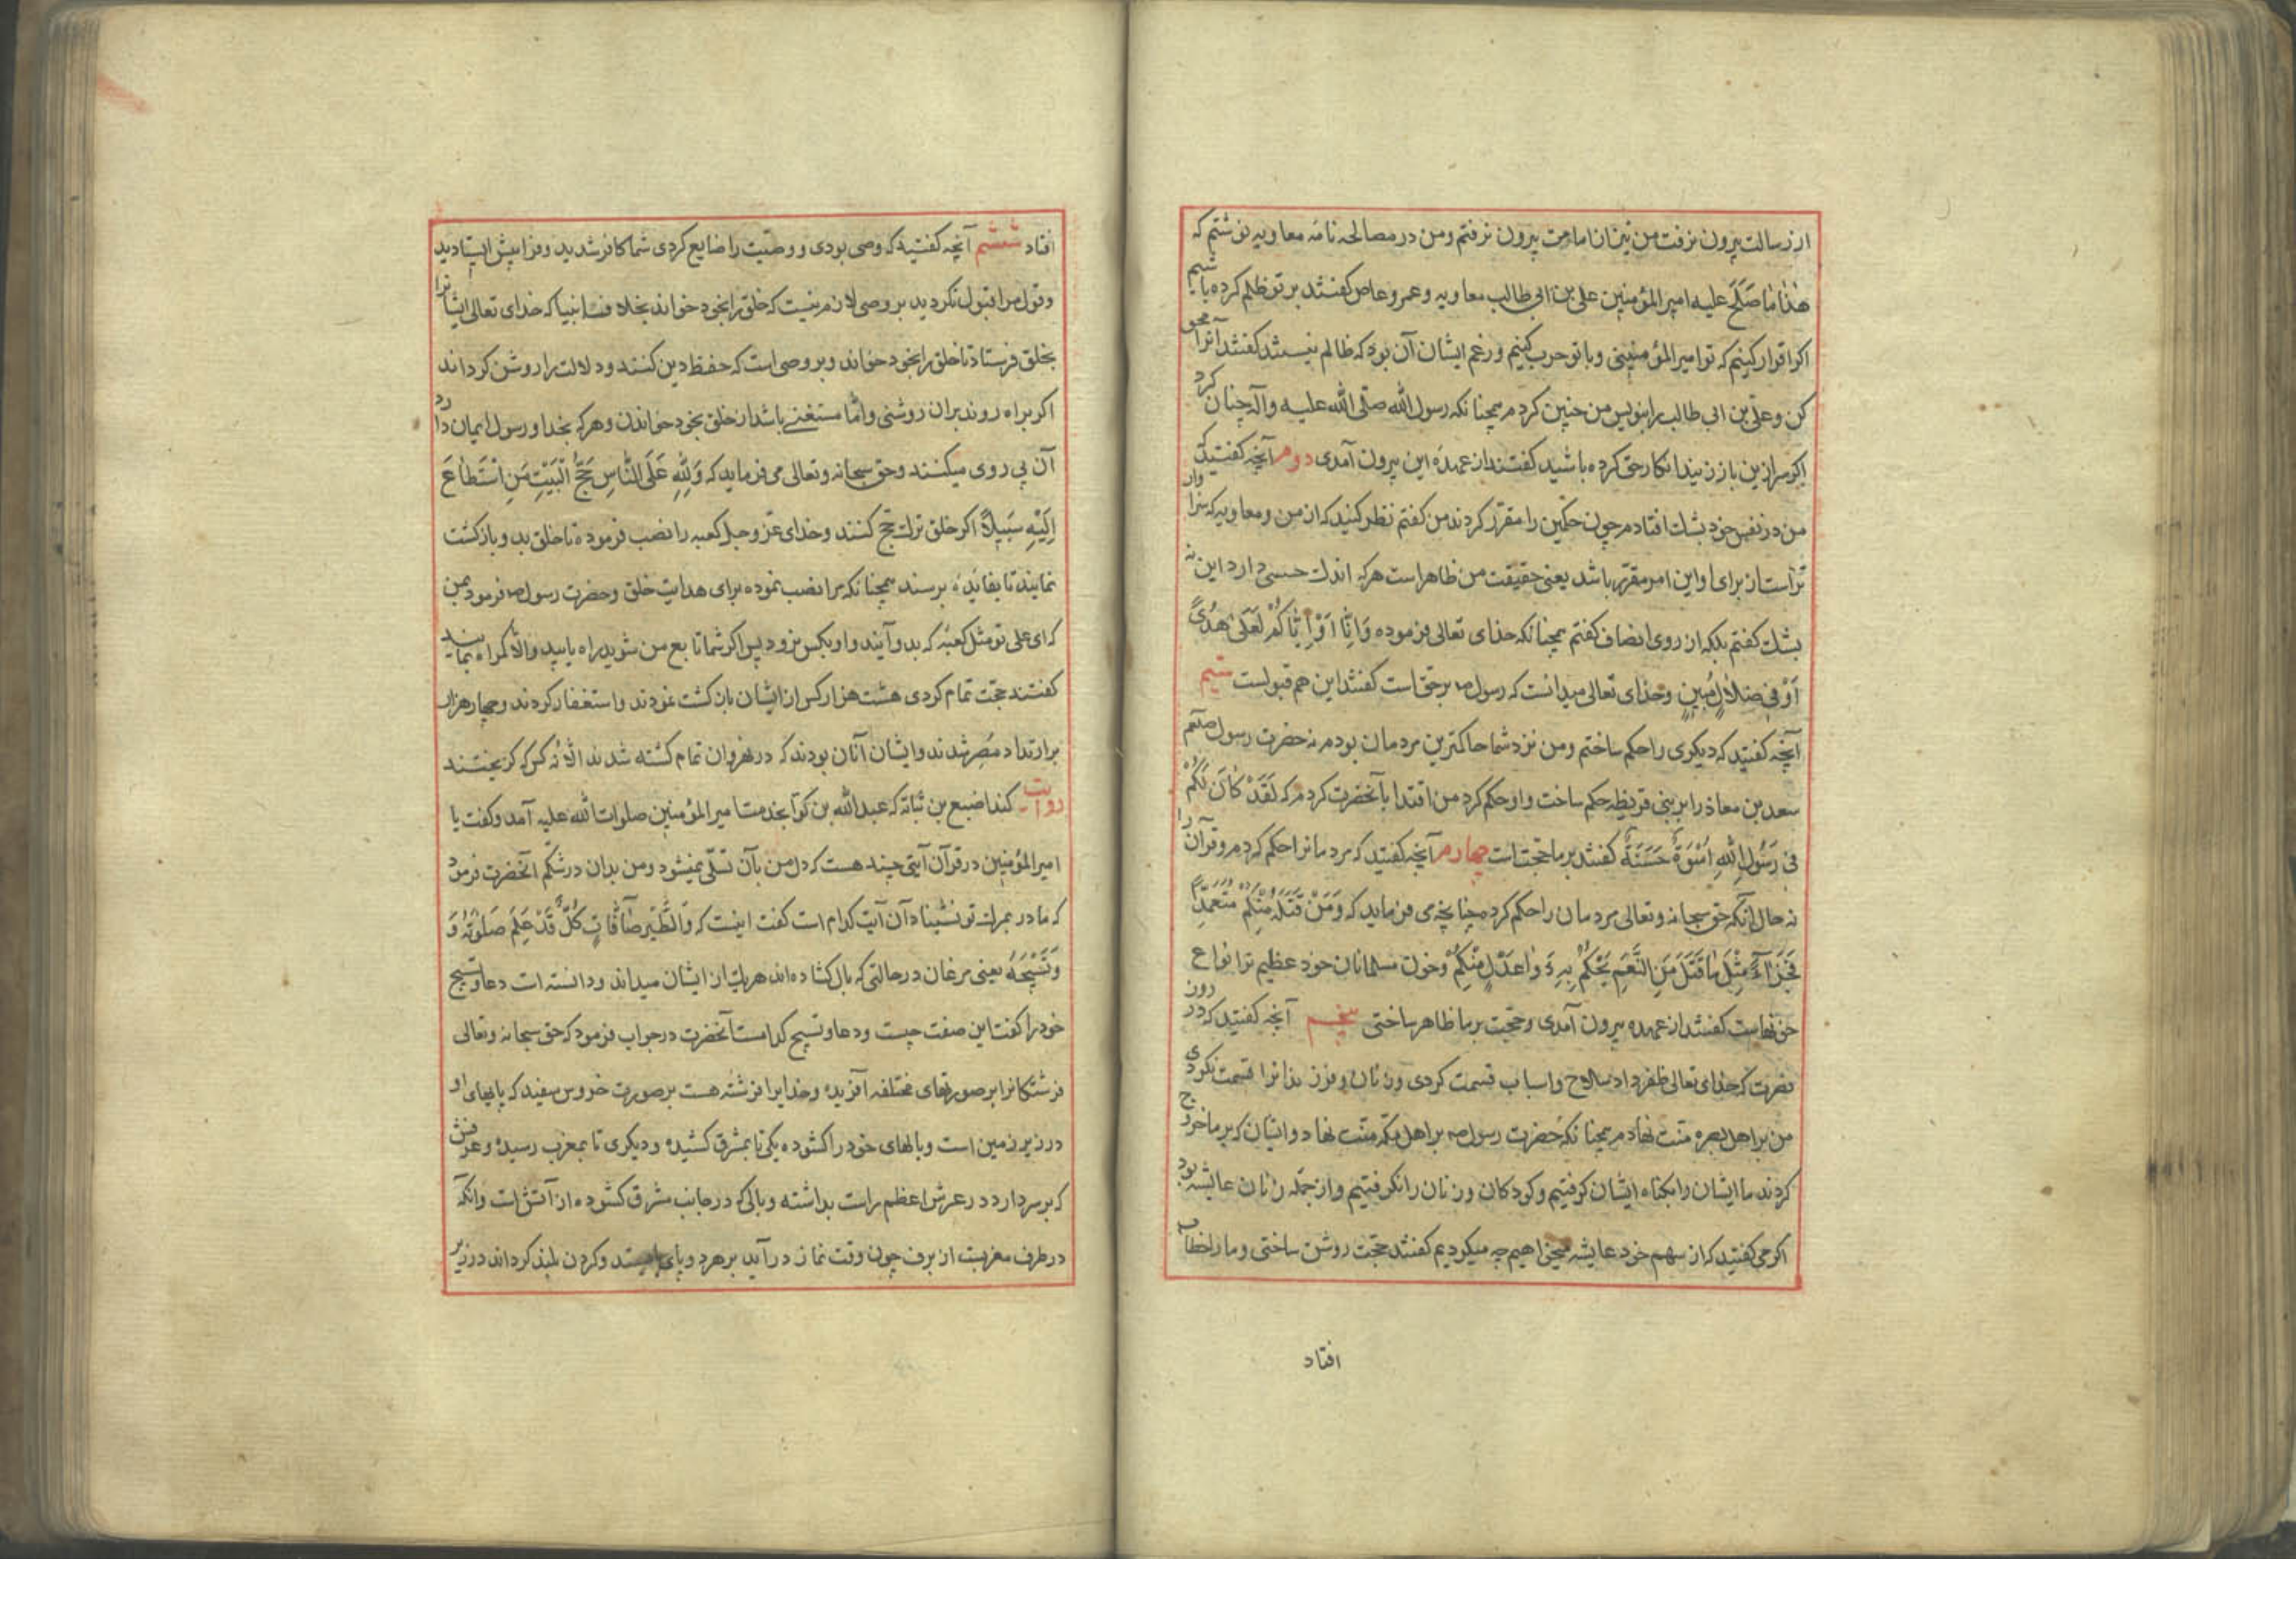 از رسالت بیرون نرفت من نیز از امامت بیرون نرفتم ومن در مصالحه نامه معاویه نوشتم که
هٰذٰا مٰا صَلَحَ علیه امیر المؤمنین علی بن ابی طالب معاویه وعمرو عاص کفتند بر تو ظلم کرده باشیم
اکر اقرار کنیم که تو امیر المؤمنینی وبا تو حرب کنیم ورغم ایشان آن بود که ظالم نیستند کفتند آنرا محو
کن وعلی بن ابی طالب را بنویس من چنین کردم همچنانکه رسول الله صلّی الله علیه وآله چنان کرد
اکر سر ازین باز زنید انکار حق کرده باشید کفتند از عهده این بیرون آمدی دوم آنچه کفتید که
من در نفس خود بشك افتادم چون حکمین را مقرّر کردند من کفتم نظر کنید که از من ومعاویه که سزاوار
تراست از برای او این امر مقرّر باشد یعنی حقیقت من ظاهر است هرکه اندك حسی دارد این نه
بشك کفتم بلکه از روی انصاف کفتم همچنانکه خدای تعالی فرموده وَاِنّٰا اَوْ اِیّٰاکُمْ لَعَلیٰ هُدًی
اَوْ فی ضَلٰالٍ مُبینٍ وخدای تعالی میدانست که رسول ص بر حق است کفتند این هم قبولست سیم
آنچه کفتید که دیکری را حکم ساختم ومن نزد شما حاکمترین مردمان بودم نه حضرت رسول صلعم
سعد بن معاذ را بر بنی قریظه حکم ساخت واو حکم کرد من اقتدا بآنحضرت کردم که لَقَدْ کٰانَ لَکُمْ
فی رَسُولِ اللهِ اُسْوَةٌ حَسَنَةٌ کفتند بر ما حجت است چهارم آنچه کفتید که مردمانرا حکم کردم وقرآن را
نه حال آنکه حق سبحانه وتعالی مردمان را حکم کرده چنانچه می فرماید که وَمَنْ قَتَلَهُ مِنْکُمْ مُتَعَمِّدًا
فَجَزٰآءٌ مِثْلُ مٰا قَتَلَ مِنَ النَّعَمِ یَحْکُمُ بِهِ ذَوٰا عَدْلٍ مِنْکُمْ وخون مسلمانان خود عظیم تر از انواع
خونهاست کفتند از عهده بیرون آمدی وحجت بر ما ظاهر ساختی پنجم آنچه کفتید که در روز
نصرت که خدای تعالی ظفر داد سلاح واسباب قسمت کردی وزنان وفرزندانرا قسمت نکردی
من بر اهل بصره منّت نهادم همچنانکه حضرت رسول ص بر اهل مکّه منّت نهاد وایشان که بر ما خروج
کردند ما ایشان را بکناه ایشان کرفتیم وکودکان وزنان را نکرفتیم واز جمله زنان عایشه بود
اکر می کفتید که از سهم خود عایشه میخواهیم چه میکردیم کفتند حجت روشن ساختی وما را خطاب
افتاد
افتاد ششم آنچه کفتید که وصی بودی ووصیّت را ضایع کردی شما کافر شدید وفرا پیش ایستادید
وقول مرا قبول نکردید بر وصی لازم نیست که خلق را بخود خواند بخلاف انبیا که خدای تعالی ایشانرا
بخلق فرستاد تا خلق را بخود خواند وبر وصی است که حفظ دین کنند ودلالت را روشن کرداند
اکر براه روند بران روشنی وامّا مستغنی باشد از خلق بخود خواندن وهرکه بخدا ورسول ایمان دارد
آن پی روی میکنند وحق سبحانه وتعالی می فرماید که وَلِلّٰهِ عَلَی النّٰاسِ حِجُّ الْبَیْتِ مَنِ اسْتَطٰاعَ
اِلَیْهِ سَبیلاً اکر خلق ترك حج کنند وخدای عزّ وجل کعبه را نصب فرموده تا خلق بدو بازکشت
نمایند تا بفائده برسند همچنانکه مرا نصب نموده برای هدایت خلق وحضرت رسول ص فرمود بمن
که ای علی تو مثل کعبۀ که بدو آیند واو بکس نرود پس اکر شما تابع من شوید راه یابید والّا کمراه بمانید
کفتند حجّت تمام کردی هشت هزار کس از ایشان بازکشت نمودند واستغفار کردند وچهار هزار
بر ارتداد مُصِر شدند وایشان آنان بودند که در نهروان تمام کشته شدند الّا نُه کس که کریختند
روایت کند اصبغ بن نباته که عبد الله بن کوّا بخدمت امیر المؤمنین صلوات الله علیه آمد وکفت یا
امیر المؤمنین در قرآن آیتی چند هست که دل من بآن تسلّی نمیشود ومن بدان در شکّم آنحضرت فرمود
که مادر بمرك تو نشیناد آن آیت کدام است کفت اینست که وَالطَّیْرِ صٰآفّٰاتٍ کُلٌّ قَدْ عَلِمَ صَلٰوتَهُ وَ
وَتَسْبیحَهُ یعنی مرغان در حالتی که بال کشاده اند هریك از ایشان میداند ودانسته است دعا وتسبیح
خود را کفت این صفت چیست ودعا وتسبیح کدامست آنحضرت در جواب فرمود که حق سبحانه وتعالی
فرشتکانرا بر صورتهای مختلفه آفریده وخدایرا فرشتۀ هست بر صورت خروس سفید که پایهای او
در زیر زمین است وبالهای خود را کشوده یکی تا بمشرق کشیده ودیکری تا بمغرب رسیده وعرفش
که بر سر دارد در عرش اعظم راست بداشته وبالی که در جانب مشرق کشوده از آتش است وآنکه
در طرف مغربست از برف چون وقت نماز در آید بر هر دو پای بایستد وکردن بلند کرداند در زیر